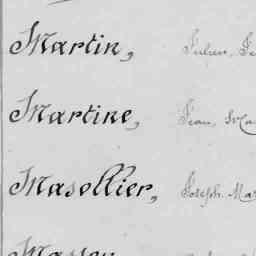 Martin, Julien,
Martine, Jean,
Masellier, Joseph. Mar